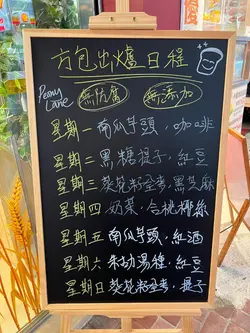 方包出爐日程
Peony Lane
無防腐 無添加
星期一 南瓜芋頭, 咖啡
星期二 黑糖提子, 紅豆
星期三 葵花籽全麥, 黑芝麻
星期四 奶茶, 合桃椰絲
星期五 南瓜芋頭, 紅酒
星期六 湯種, 紅豆
星期日 葵花籽全麥, 提子